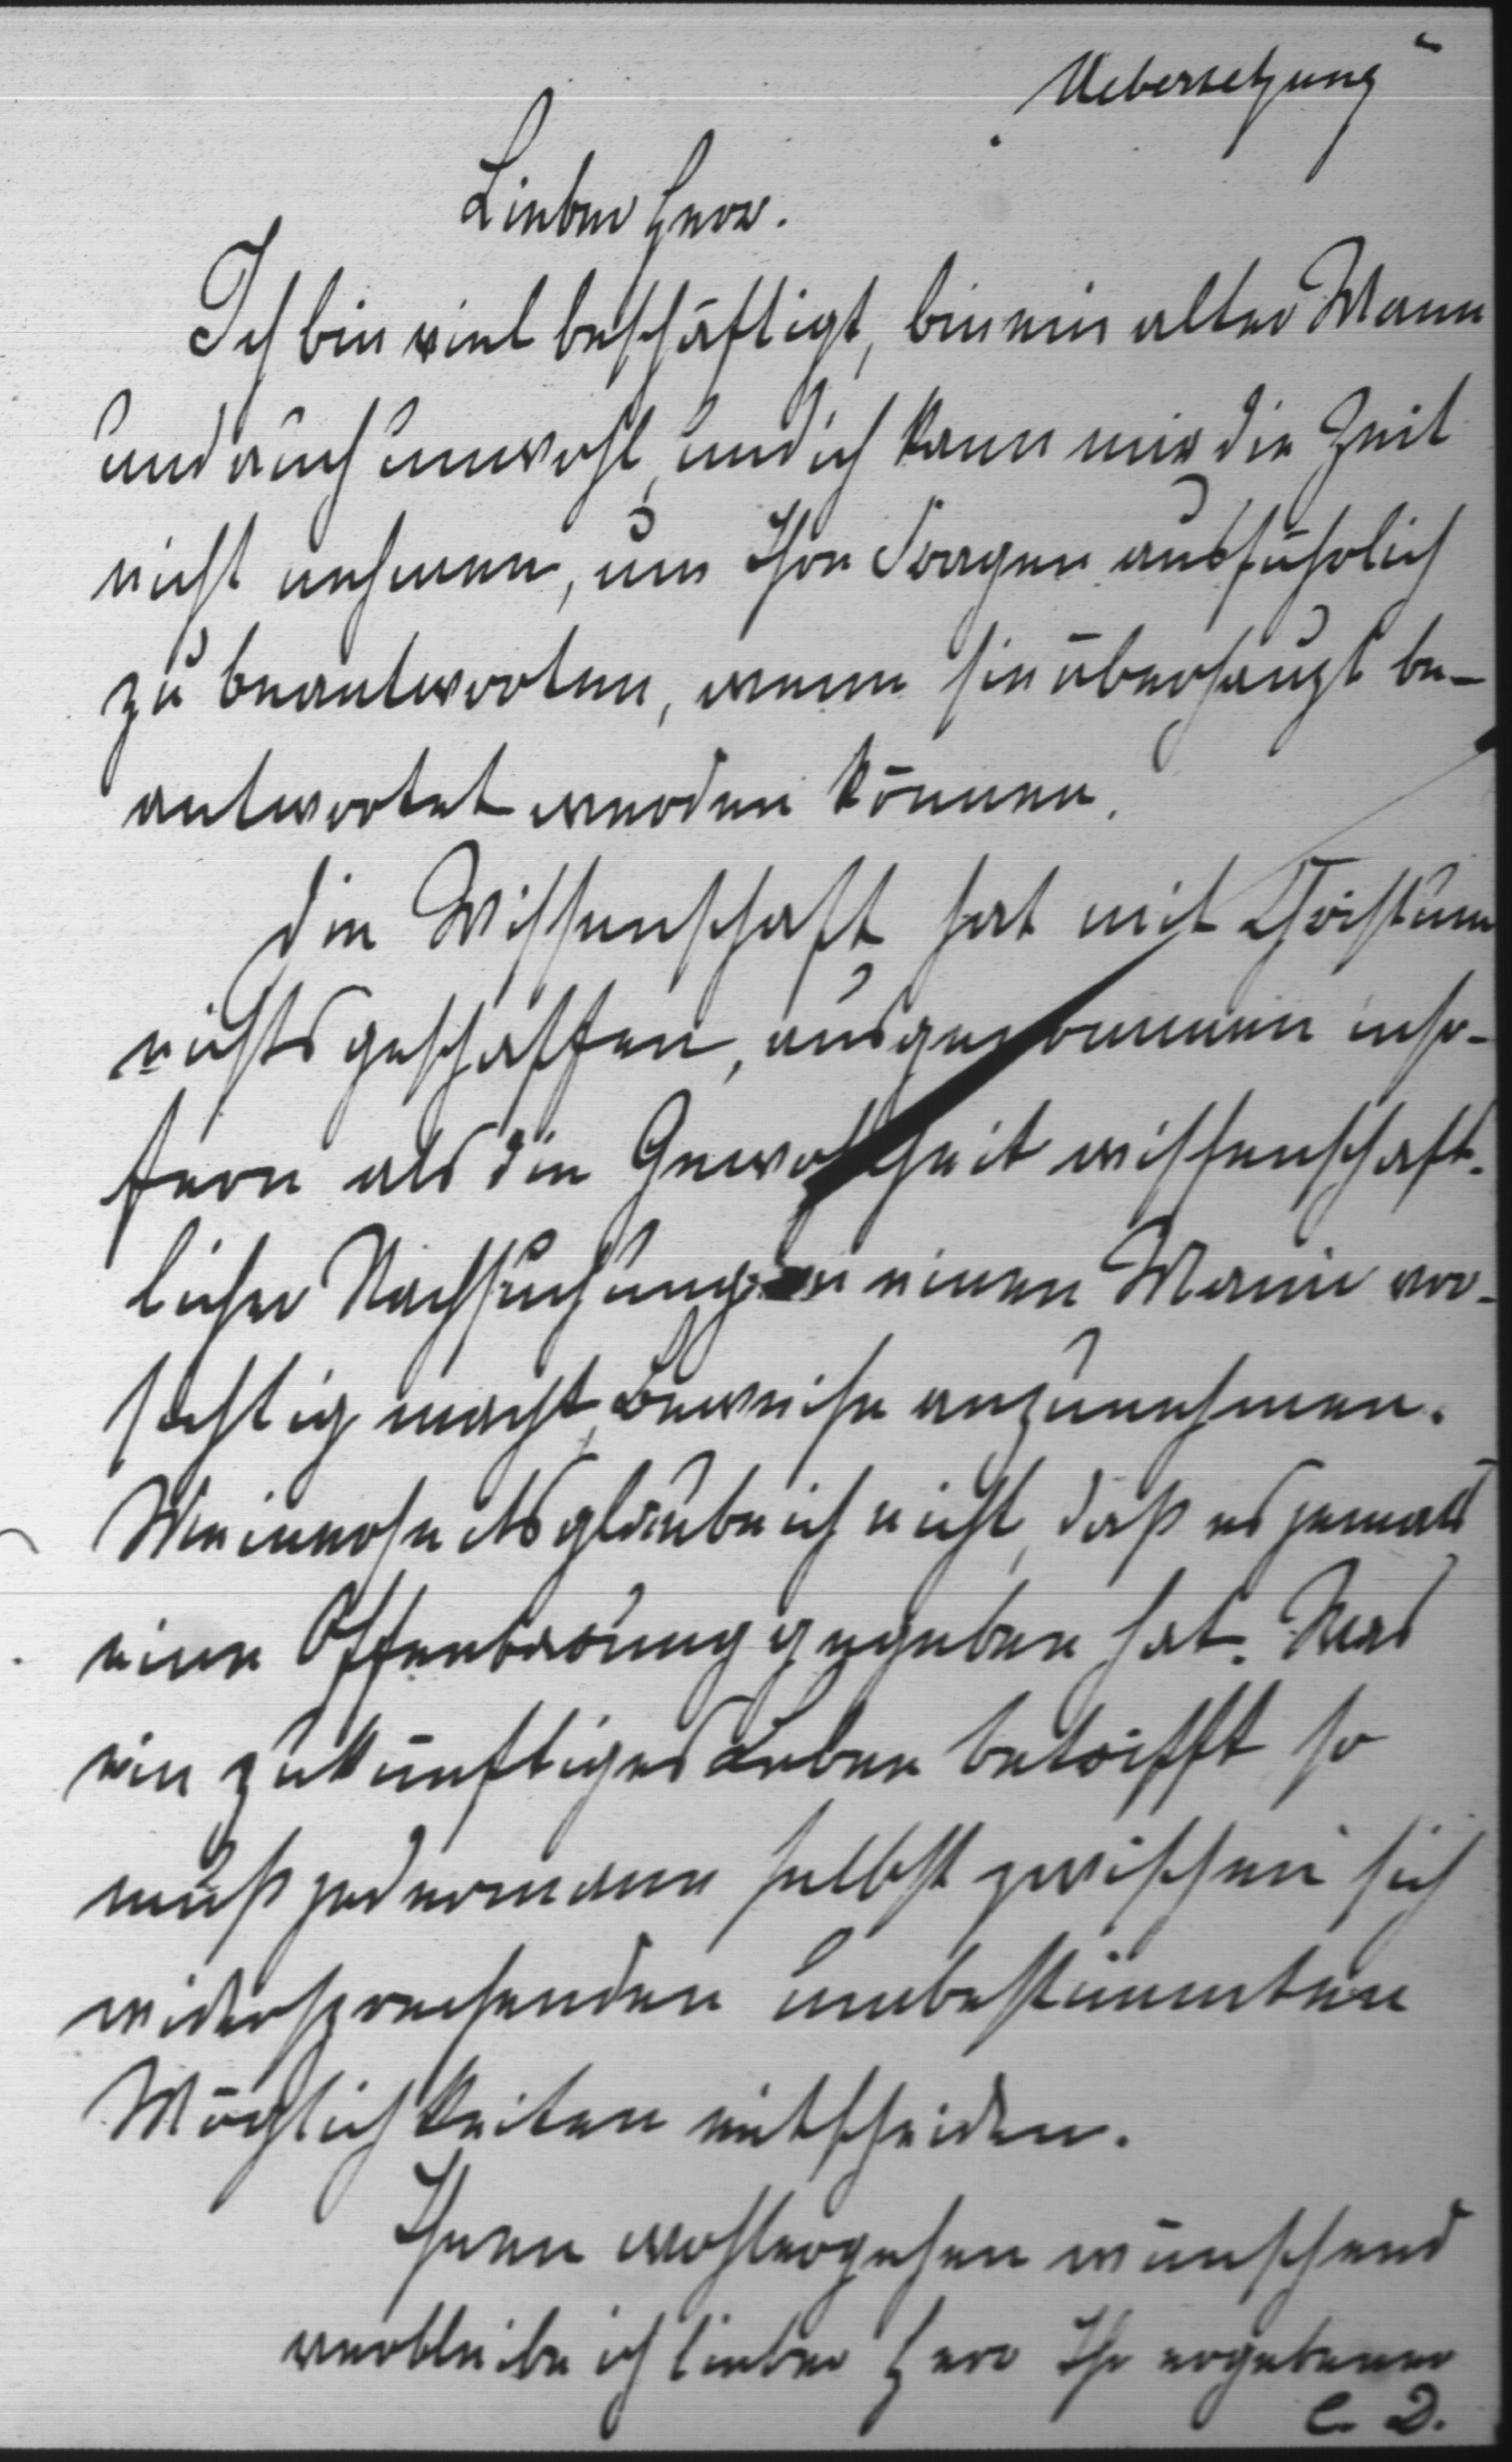 Uebersetzung
Lieber Herr.
Ich bin viel beschäftigt, bin ein alter Mann
und auch unwohl, und ich kann mir die Zeit
nicht nehmen, um Ihre Fragen ausführlich
zu beantworten, wenn sie überhaupt be-
antwortet werden können.
Die Wissenschaft hat mit Christum
nichts geschaffen, ausgenommen inso-
fern als die Gewohnheit wissenschaft-
licher Nachsuchungen einen Mann vor-
sichtig macht, Beweise anzunehmen.
Meinerseits glaube ich nicht, daß es jemals
eine Offenbarung gegeben hat. Was
ein zukünftiges Leben betrifft so
muß jedermann selbst zwischen sich
widersprechenden unbestimmten
Möglichkeiten entscheiden.
Ihnen wohlergehen wünschend
verbleibe ich lieber Herr Ihr ergebener
C. D.